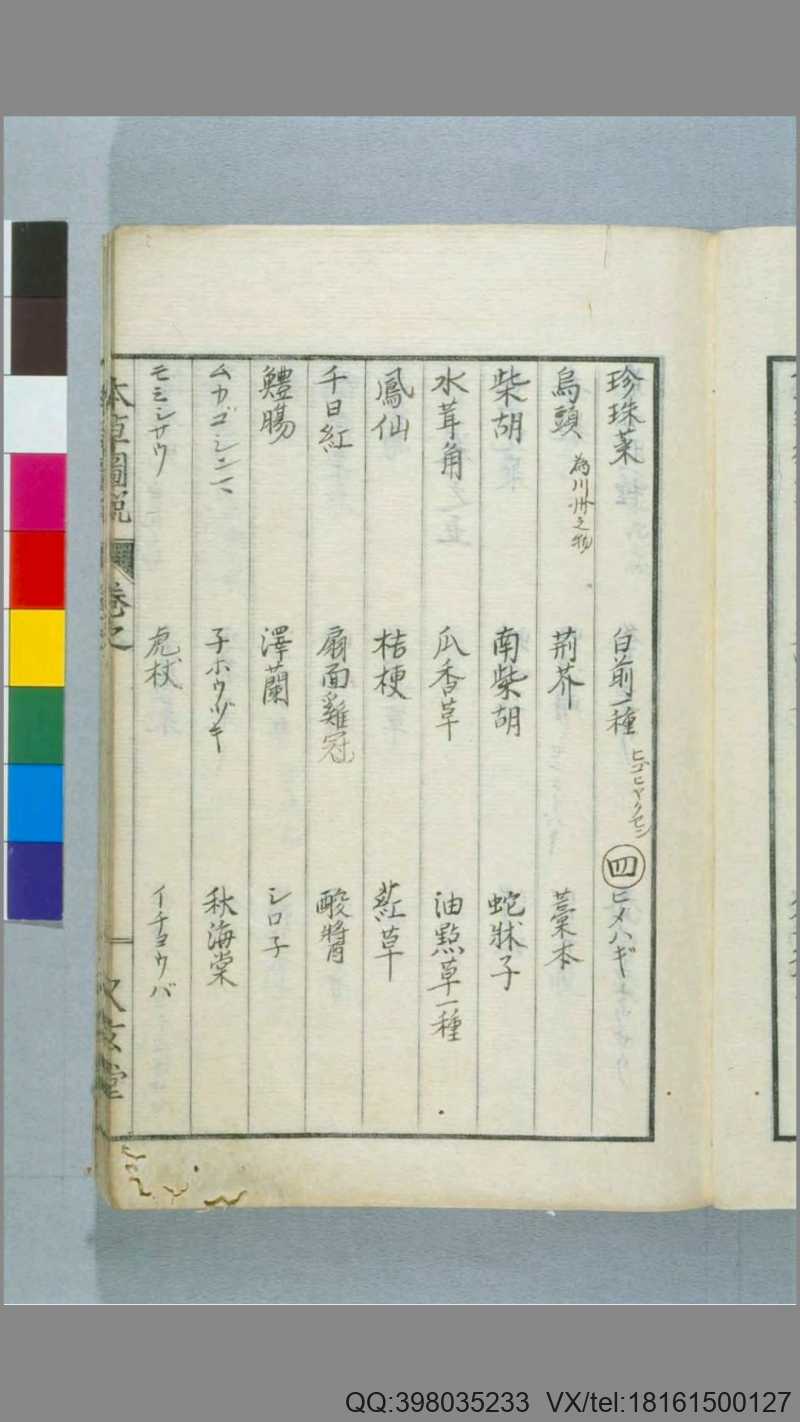 珍珠菜 白前一種 ヒゴヒヤクセン 四 ヒメハギ
烏頭 為川州之物 荊芥 藁本
柴胡 南柴胡 蛇牀子
水茸角 瓜香草 油點草一種
鳳仙 桔梗 葒草
千日紅 扇面雞冠 酸醬
鱧腸 澤蘭 シロ子
ムカゴシニマ 子ホウヅキ 秋海棠
モミジサウ 虎杖 イチヨウバ
本草圖說 卷之
QQ:398035233 VX/tel:18161500127